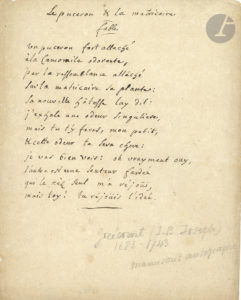 Le puceron & la matricaire
Fable
Un puceron fort attaché
à la Camomile odorante,
par la ressemblance attaché
Sur la matricaire se planta:
Sa nouvelle hôtesse luy dit:
j'exhale une odeur singuliere,
mais tu t'y feras, mon petit,
& cette odeur te sera chere:
je vas bien voir: oh vrayment ouy,
une senteur
que le nez seul m'a réjoui,
mais toy! tu réjouis l'idée.
Grécourt (J.B. Joseph)
1683-1743
manuscrit autographe